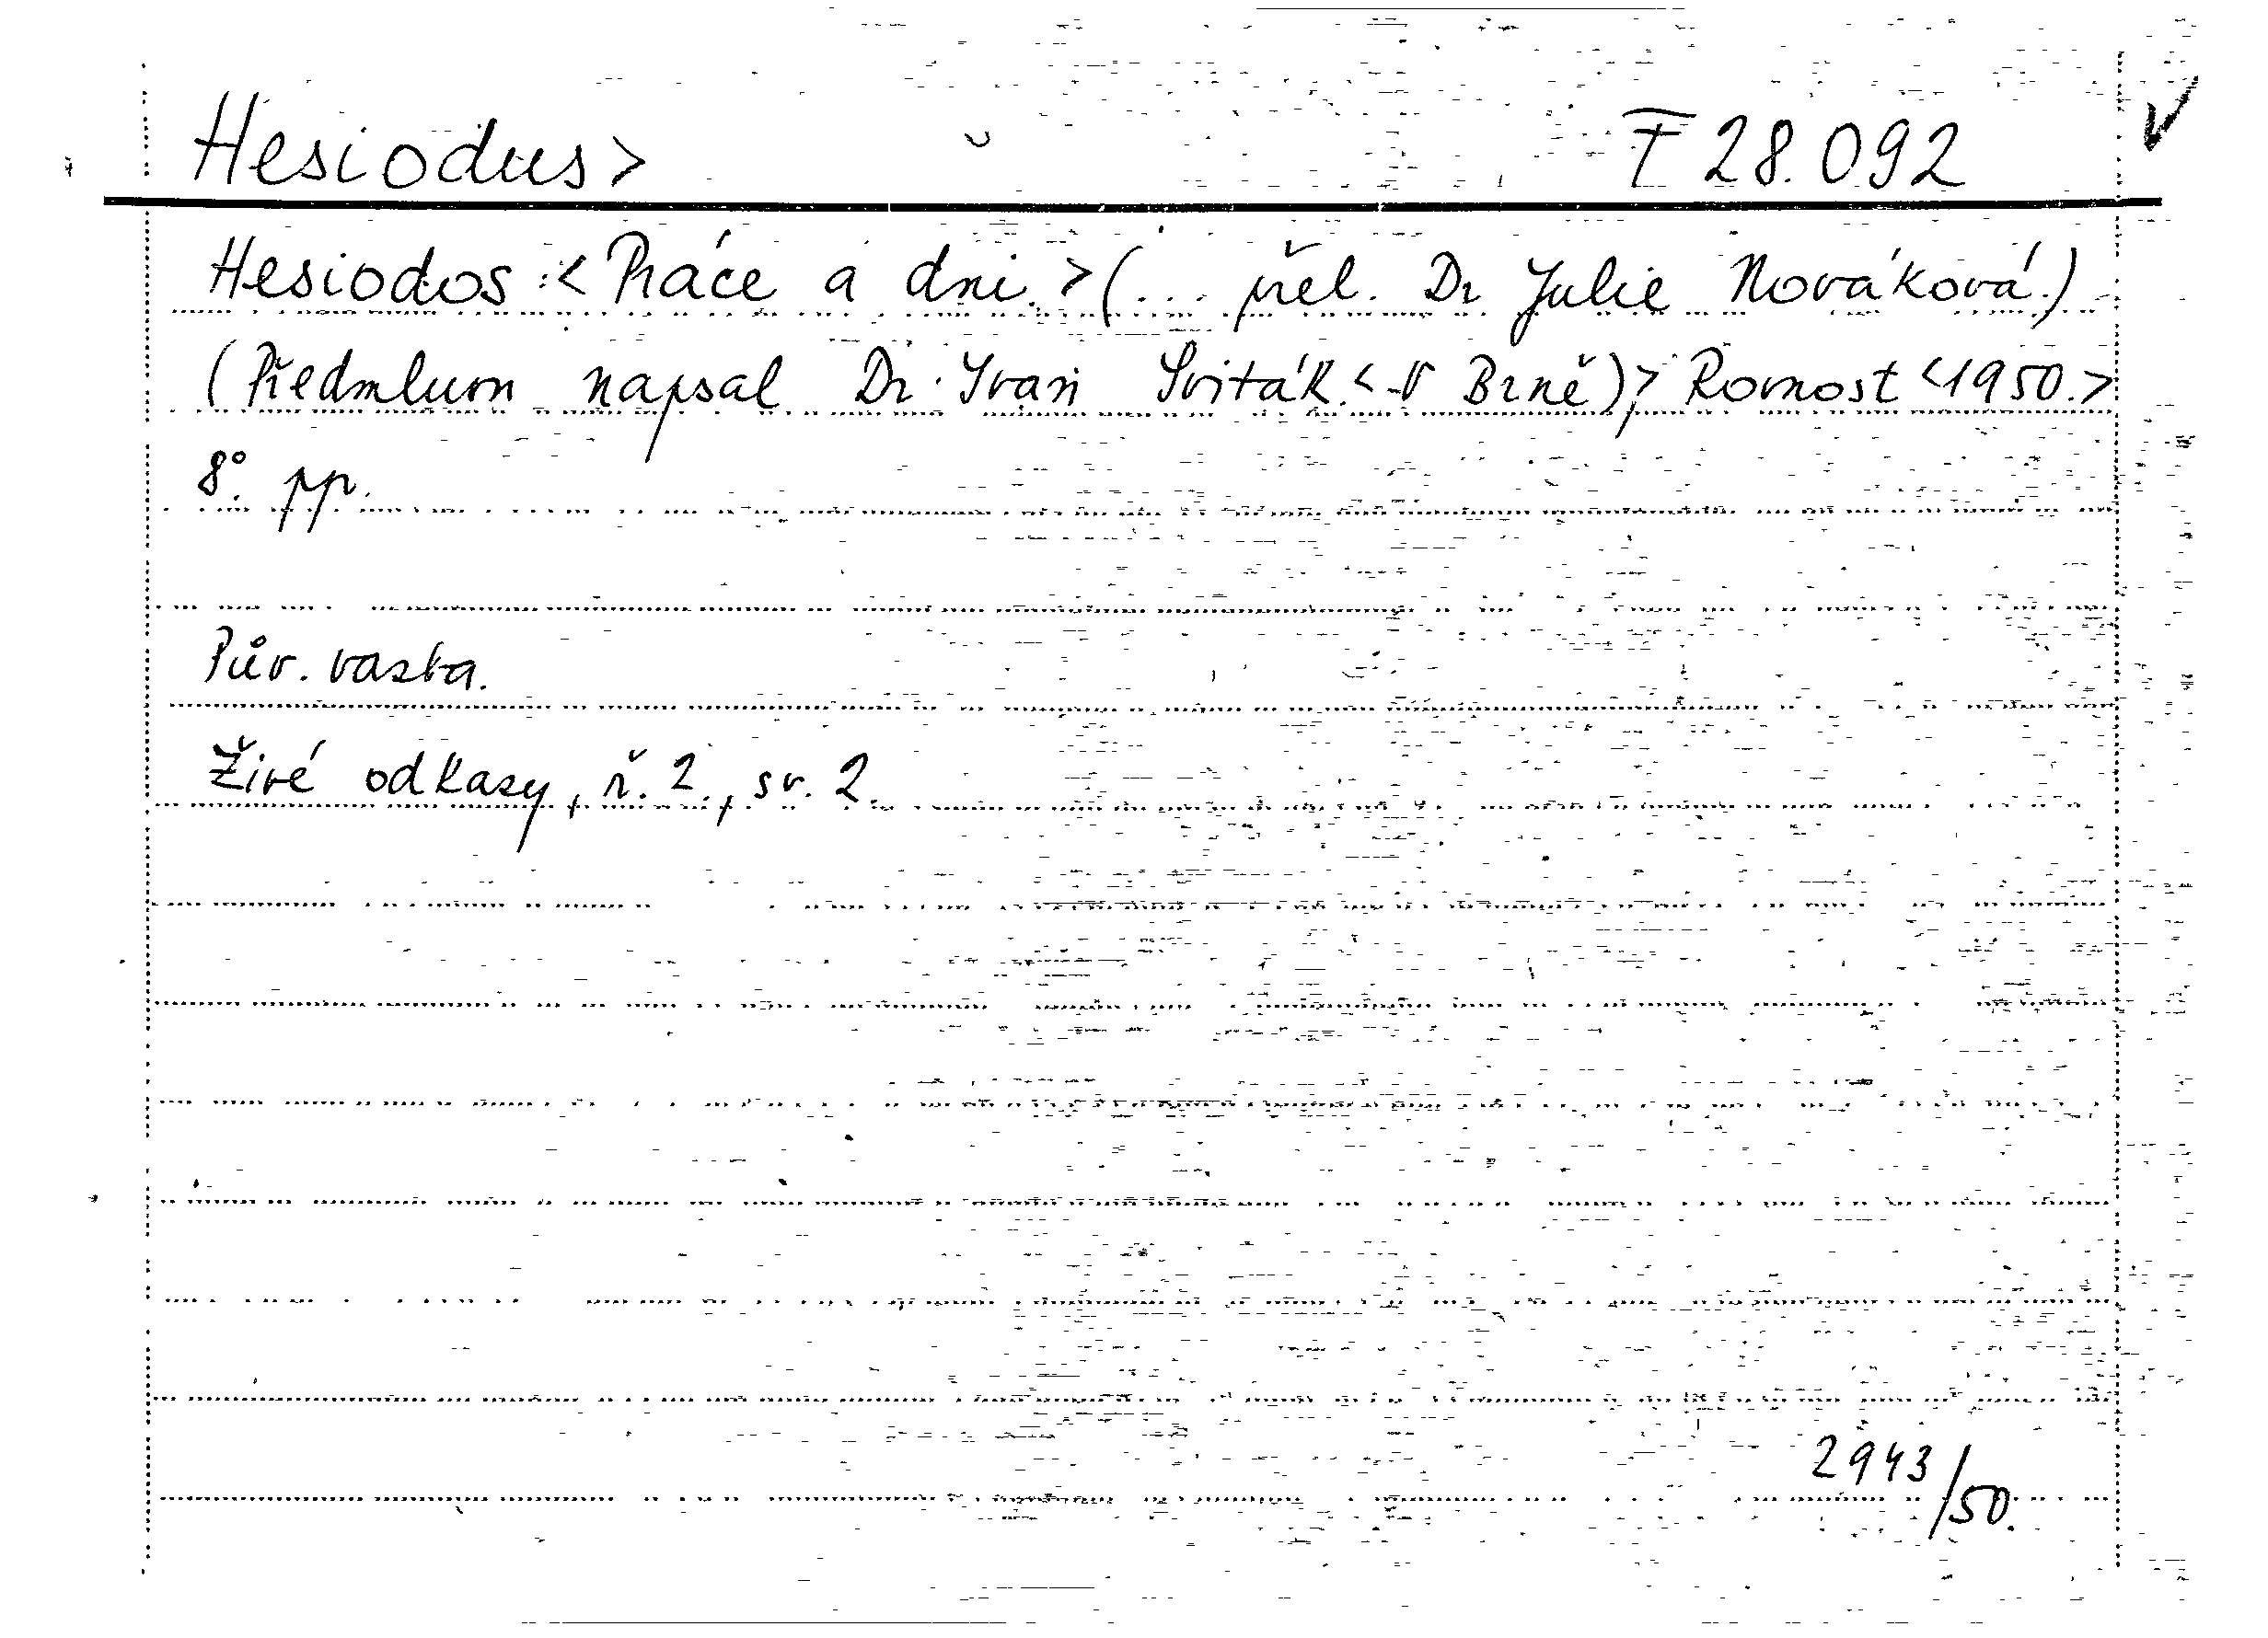 Hesiodus> F 28.092
Hesiodos: <Práce a dni.> (... přel. Dr Julie Nováková.)
(Předmluvu napsal Dr. Ivan Sviták. <V Brně),> Rovnost <1950.>
8°. pp.
Pův. vazba.
Živé odkazy, ř. 2., sv. 2.
2943/50.